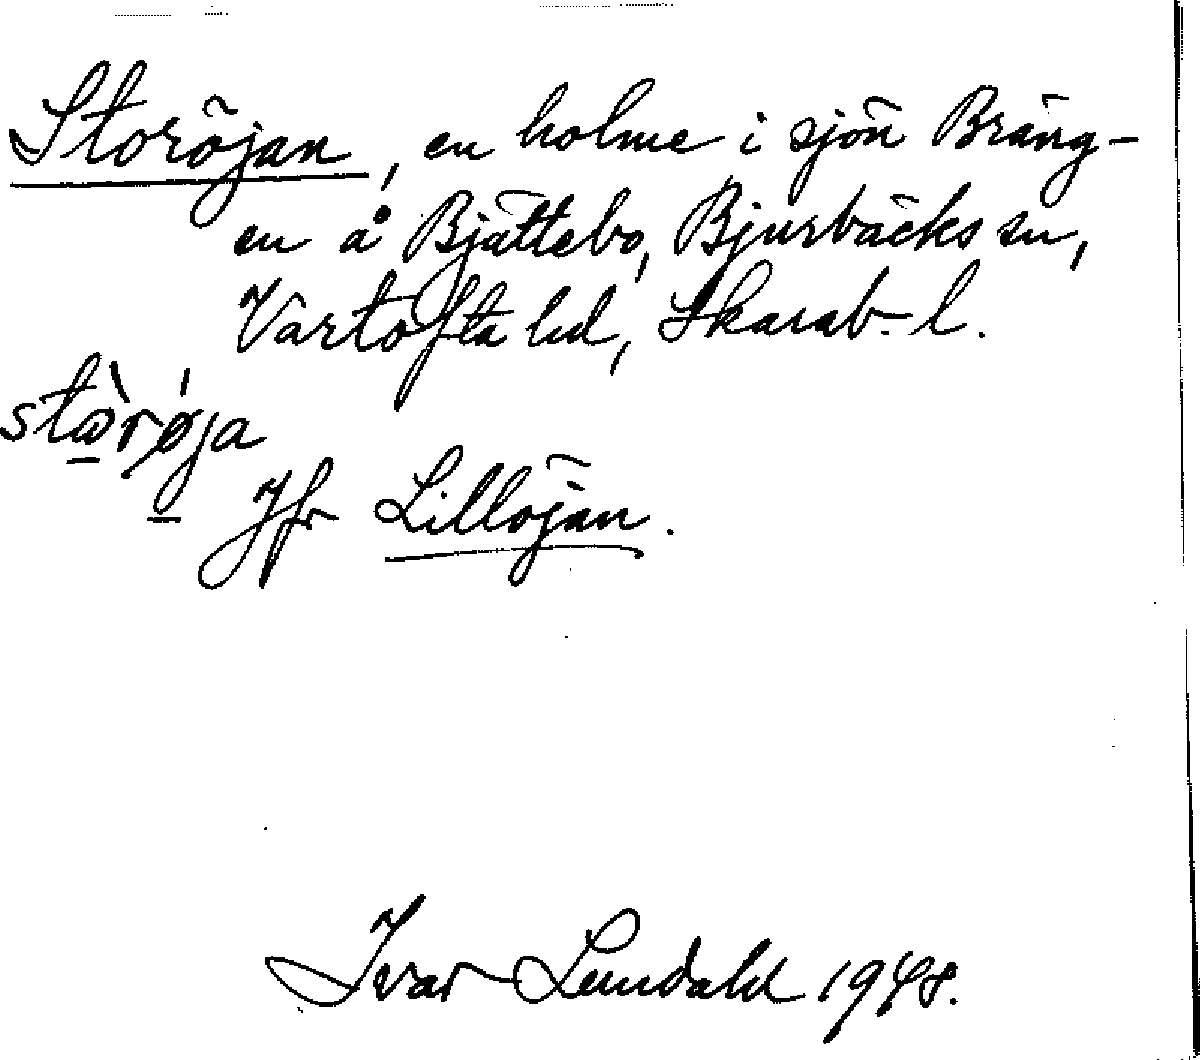 Storöjan, en holme i sjön Bräng-
en å Bjättebo, Bjurbäcks sn,
Vartofta hd, Skarab. l.
stòrǿja
Jfr Lillöjan.
Ivar Lundahl 1948.